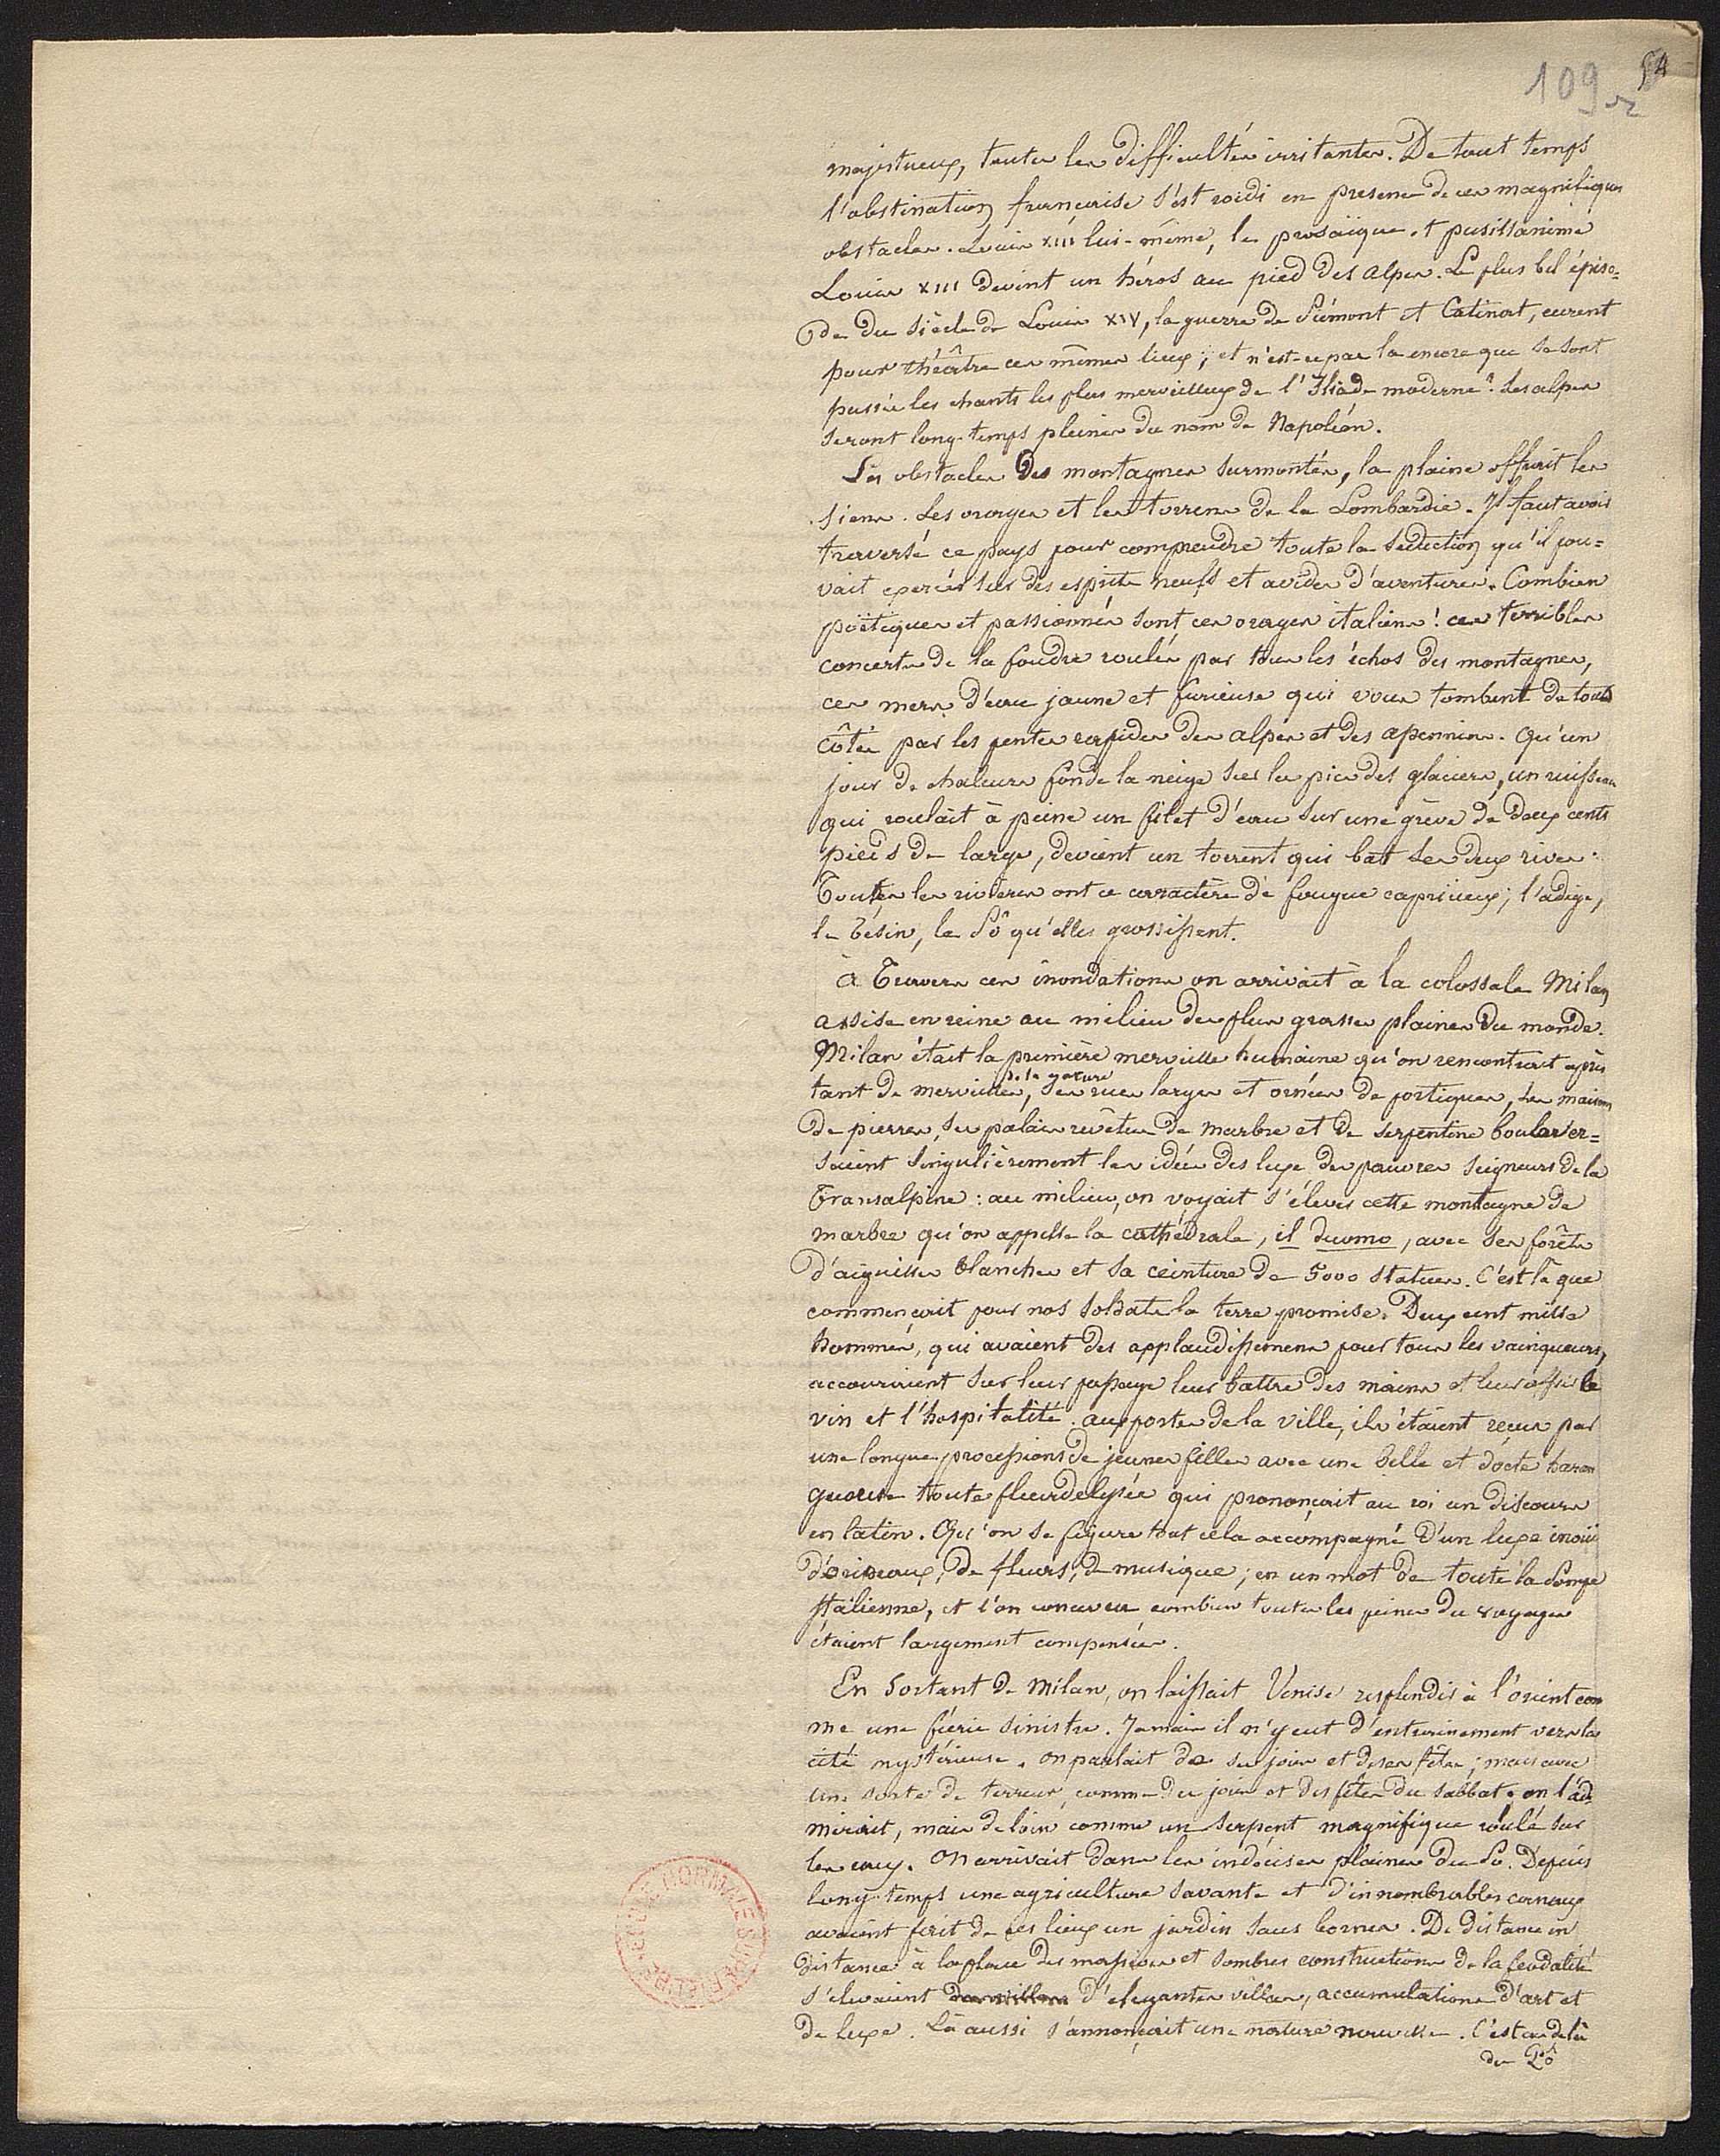 109
54
majestueux, toutes les difficultés irritantes. De tout temps
l'obstination française s'est roidi en presence de ces magnifiques
obstacles. Louis XIII lui-même, le prosaïque et pusillanime
Louis XIII devint un héros au pied des alpes. Le plus bel épiso=
de du siècle de Louis XIV, la guerre de Piémont et Catinat, eurent
pour théâtre ces mêmes lieux; et n'est-ce pas la encore que se sont
passés les chants les plus merveilleux de l'Iliade moderne? Les alpes
seront long-temps pleines du nom de Napoléon.
Les obstacles des montagnes surmontés, la plaine offrait les
siens. Les orages et les torrens de la Lombardie. Il faut avoir
traversé ce pays pour comprendre toute la séduction qu'il pou=
vait exercer sur des esprits neufs et avides d'aventures. Combien
poëtiques et passionnés sont ces orages italiens! ces terribles
concerts de la foudre roulés par tous les échos des montagnes,
ces mers d'eau jaune et furieuse qui vous tombent de tous
côtés par les pentes rapides des alpes et des apennins. Qu'un
jour de chaleurs fonde la neige sur les pics des glaciers, un ruisseau
qui roulait à peine un filet d'eau sur une grève de deux cents
pieds de large, devient un torrent qui bat ses deux rives.
Toutes les rivières ont ce caractère de fougue capricieux; l'adige,
le Tésin, le Pô qu'elles grossissent.
à Travers ces inondations on arrivait à la colossale Milan
assise en reine au milieu des plus grasses plaines du monde.
Milan était la première merveille humaine qu'on rencontrait après
de la nature
tant de merveilles, ses rues larges et ornées de portiques, ses maisons
de pierres, ses palais revêtus de marbre et de serpentine boulever=
saient singulièrement les idées des luxe des pauvres seigneurs de la
Transalpine: au milieu, on voyait s'élever cette montagne de
marbre qu'on appelle la cathédrale, il duomo, avec ses forêts
d'aiguilles blanches et sa ceinture de 5000 statues. C'est là que
commençait pour nos soldats la terre promise. Deux cent mille
hommes, qui avaient des applaudissemens pour tous les vainqueurs,
accouraient sur leur passage leur battre des mains et leur offrir le
vin et l'hospitalité. aux portes de la ville, ils étaient reçus par
une longue processions de jeunes filles avec une belle et docte haran
gueuse toute fleurdelysée qui prononçait au roi un discours
en latin. Qu'on se figure tout cela accompagné d'un luxe inouï
d'oripeaux, de fleurs, de musique; en un mot de toute la Pompe
Italienne, et l'on concevra combien toutes les peines du voyage
étaient largement compensées.
En sortant de Milan, on laissait Venise resplendir à l'orient com
me une féerie sinistre. Jamais il n'y eut d'entrainement vers la
cité mystérieuse. on parlait de ses joies et de ses fêtes; mais avec
une sorte de terreur, comme des joies et des fêtes du sabbat. on l'ad
mirait, mais de loin comme un serpent magnifique roulé sur
les eaux. On arrivait dans les indécises plaines du Pô. Depuis
long-temps une agriculture savante et d'innombrables canaux
avaient fait de ces lieux un jardin sans bornes. De distance en
distance à la place des massives et sombres constructions de la féodalité
s'élevaient d'élégantes villas, accumulations d'art et
de luxe. Là aussi s'annonçait une nature nouvelle. C'est au delà
du Pô
ECOLE NORMALE SUPERIEURE